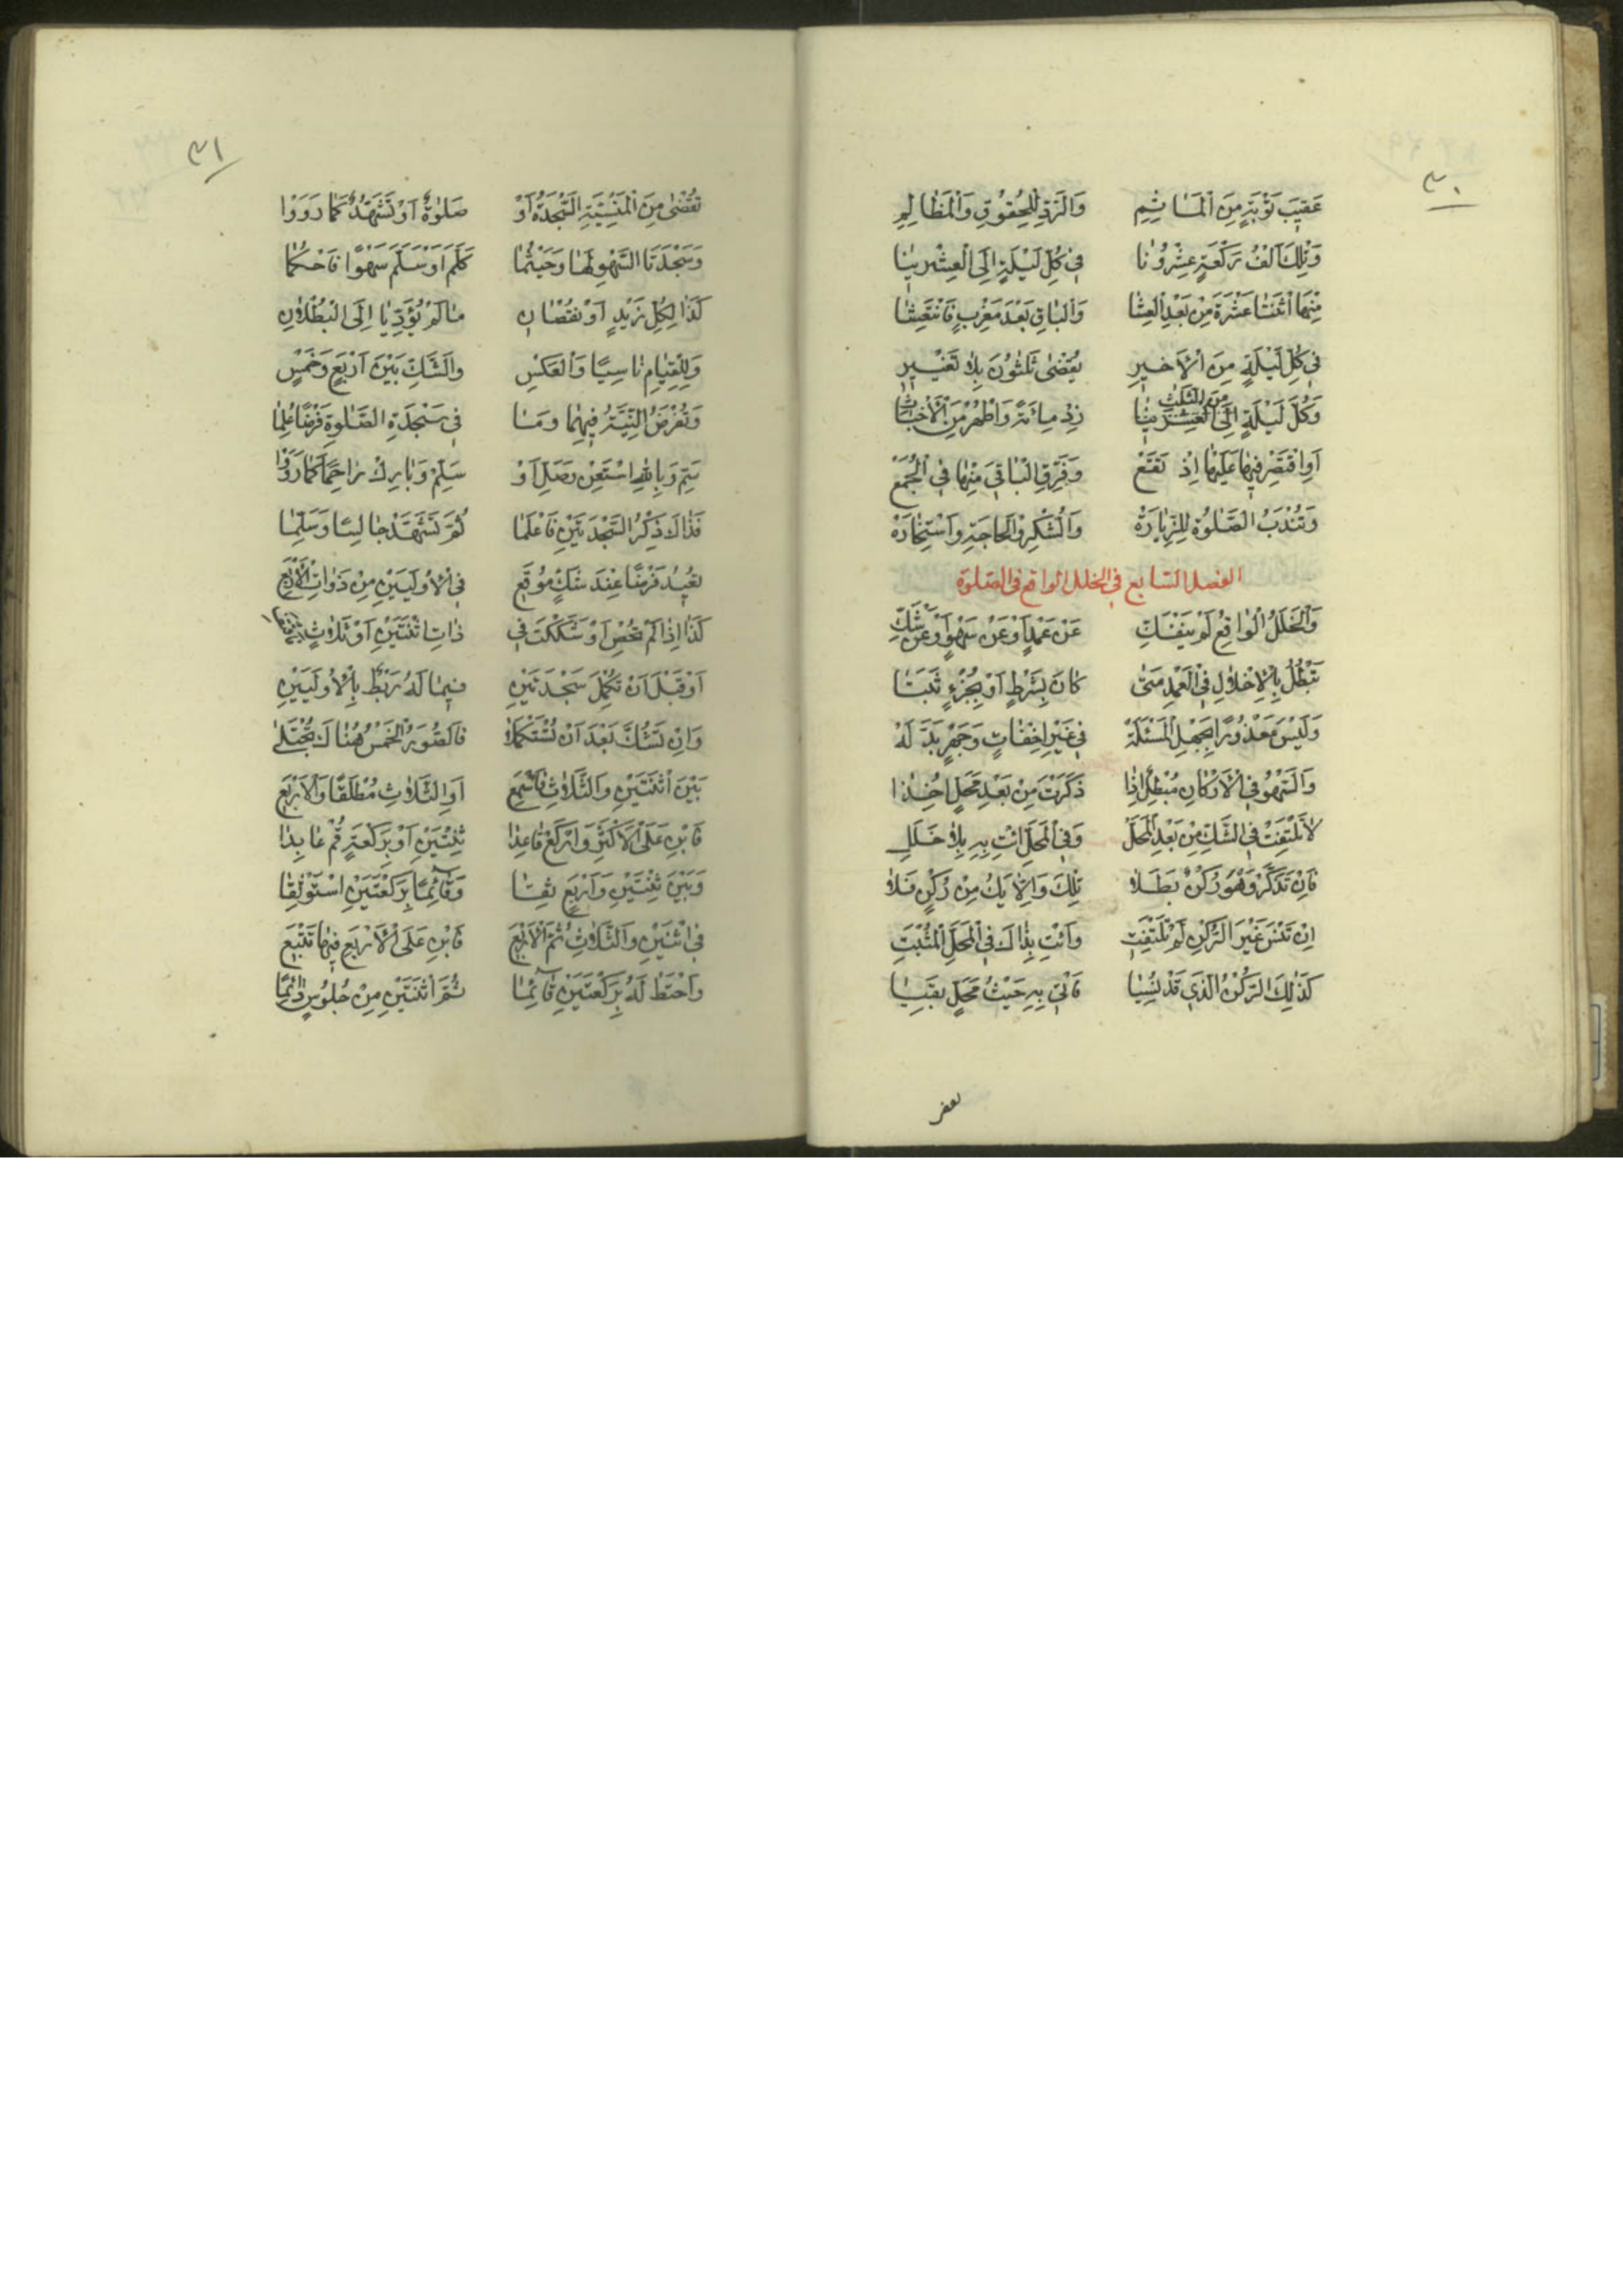 ٣٠
عَقِيبَ تَوْبَةٍ مِنَ الْمَاثِمِ وَالرَّدِّ لِلْحُقُوقِ وَالْمَظَالِمِ
وَتِلْكَ اَلْفُ رَكْعَةٍ عِشْرُونَا فِي كُلِّ لَيْلَةٍ اِلَى الْعِشْرِينَا
مِنْهَا اثْنَتَا عَشْرَةَ مِنْ بَعْدِ الْعِشَا وَالْبَاقِ بَعْدَ مَغْرِبٍ
فِي كُلِّ لَيْلَةٍ مِنَ الْاَخِيرِ يُقْضٰى ثَلٰثُونَ بِلَا تَغْيِيرِ
وَكُلَّ لَيْلَةٍ مِنَ الثَّلٰثِ زِدْ مِائَةً وَاطْهُرْ مِنَ الْاَخْبَاثِ
اَوِ اقْتَصِرْ فِيهَا عَلَيْهَا اِذْ تَقَعْ وَفَرِّقِ الْبَاقِيَ مِنْهَا فِي الْجُمَعْ
وَتُنْدَبُ الصَّلٰوةُ لِلزِّيَارَةْ وَالشُّكْرِ وَالْحَاجَةِ وَاسْتِخَارَةْ
الفصل السابع في الخلل الواقع في الصلوة
وَالْخَلَلُ الْوَاقِعُ لَمْ يَنْفَكِّ عَنْ عَمْدٍ اَوْ عَنْ سَهْوٍ اَوْ عَنْ شَكِّ
تَبْطُلُ بِالْاِخْلَالِ فِي الْعَمْدِ مَتٰى كَانَ بِشَرْطٍ اَوْ بِجُزْءٍ ثَبَتَا
وَلَيْسَ مَعْذُورًا بِجَهْلِ الْمَسْئَلَةْ فِي غَيْرِ اِخْفَاتٍ وَجَهْرٍ بَدَّ لَهْ
وَالسَّهْوُ فِي الْاَرْكَانِ مُبْطِلٌ اِذَا ذَكَرْتَ مِنْ بَعْدِ مَحَلٍّ اُخِذَا
لَا تَلْتَفِتْ فِي الشَّكِّ مِنْ بَعْدِ الْمَحَلّْ وَفِي الْمَحَلِّ ائْتِ بِهِ بِلَا خَلَلِ
فَاِنْ تَذَكَّرْ وَهْوَ رُكْنٌ بَطَلَا تِلْكَ وَاِلَّا يَكُ مِنْ رُكْنٍ فَلَا
اِنْ تَنْسَ غَيْرَ الرُّكْنِ لَمْ تَلْتَفِتِ وَائْتِ بِذَاكَ فِي الْمَحَلِّ الْمُثْبَتِ
كَذٰلِكَ الرُّكْنُ الَّذِي قَدْ نُسِيَا فَأْتِ بِهِ حَيْثُ مَحَلٌّ بَقِيَا
٣١
تُقْضٰى مِنَ الْمَنْسِيَّةِ السَّجْدَةُ اَوْ صَلٰوةٌ اَوْ تَشَهُّدٌ كَمَا رَوَوْا
وَسَجْدَتَا السَّهْوِ لَهَا وَحَيْثُمَا كَلَّمَ اَوْ سَلَّمَ سَهْوًا فَاحْكُمَا
كَذَا لِكُلِّ زَيْدٍ اَوْ نُقْصَانِ مَا لَمْ يُؤَدِّيَا اِلَى الْبُطْلَانِ
وَلِلْقِيَامِ نَاسِيًا وَالْعَكْسِ وَالشَّكِّ بَيْنَ اَرْبَعٍ وَخَمْسٍ
وَتُفْرَضُ النِّيَّةُ فِيهِمَا وَمَا فِي سَجْدَةِ الصَّلٰوةِ فَرْضًا عُلِمَا
سَمِّ وَبِاللهِ اسْتَعِنْ وَصَلِّ اَوْ سَلِّمْ وَبَارِكْ رَاحِمًا كَمَا رَوَوْا
فَذَاكَ ذِكْرُ السَّجْدَتَيْنِ فَاعْلَمَا ثُمَّ تَشَهَّدْ جَالِسًا وَسَلِّمَا
تُعِيدُ فَرْضًا عِنْدَ شَكٍّ مُوقَعِ فِي الْاُولَيَيْنِ مِنْ ذَوَاتِ الْاَرْبَعِ
كَذَا اِذَا لَمْ تُحْصِ اَوْ شَكَكْتَ فِي ذَاتِ اثْنَتَيْنِ اَوْ ثَلَاثٍ
اَوْ قَبْلَ اَنْ تُكْمِلَ سَجْدَتَيْنِ فِيمَا لَهُ رَبْطٌ بِالْاُولَيَيْنِ
وَاِنْ تَشُكَّ بَعْدَ اَنْ تُسْتَكْمَلَا فَالصُّوَرُ الْخَمْسُ هُنَاكَ تُجْتَلٰى
بَيْنَ اثْنَتَيْنِ وَالثَّلَاثِ فَاسْمَعِ اَوِ الثَّلَاثِ مُطْلَقًا وَالْاَرْبَعِ
فَابْنِ عَلَى الْاَكْثَرِ وَارْكَعْ قَاعِدًا ثِنْتَيْنِ اَوْ بِرَكْعَةٍ قُمْ عَابِدًا
وَبَيْنَ ثِنْتَيْنِ وَاَرْبَعٍ وَقَائِمًا بِرَكْعَتَيْنِ اسْتَوْثِقَا
فِي اثْنَيْنِ وَالثَّلَاثِ ثُمَّ الْاَرْبَعِ فَابْنِ عَلَى الْاَرْبَعِ فِيهَا تَتْبَعِ
وَاحْتَطْ لَهُ بِرَكْعَتَيْنِ قَائِمَا ثُمَّ اثْنَتَيْنِ مِنْ جُلُوسٍ دَائِمًا